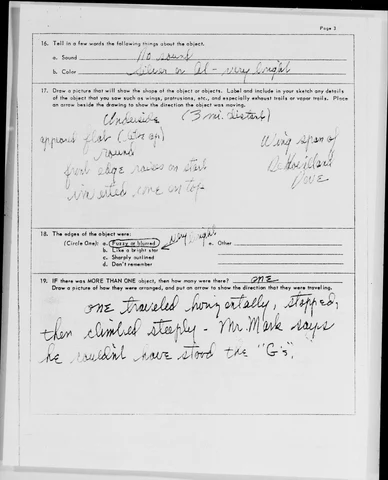 Page 3
16. Tell in a few words the following things about the object.
a. Sound No sound
b. Color Silver or Al - very bright
17. Draw a picture that will show the shape of the object or objects. Label and include in your sketch any details
of the object that you saw such as wings, protrusions, etc., and especially exhaust trails or vapor trails. Place
an arrow beside the drawing to show the direction the object was moving.
Underside (3 mi. distant)
appeared flat
round
front edge raises on start
inverted cone on top
Wing span of
De Havilland
Dove
18. The edges of the object were:
(Circle One): a. Fuzzy or blurred very bright e. Other
b. Like a bright star
c. Sharply outlined
d. Don't remember
19. IF there was MORE THAN ONE object, then how many were there? one
Draw a picture of how they were arranged, and put an arrow to show the direction that they were traveling.
one traveled horizontally, stopped,
then climbed steeply - Mr. Mark says
he couldn't have stood the "G's".